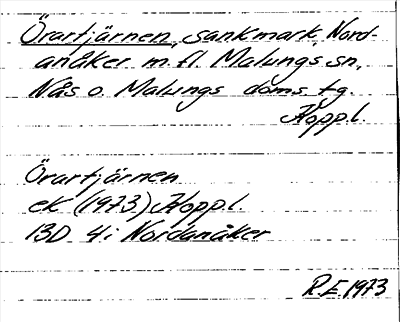 Örartjärnen, sankmark, Nord-
anåker m.fl. Malungs sn,
Nås o. Malungs doms. tg.
Koppl.
Örartjärnen
ek (1973) Koppl.
13D 4i Nordanåker
R.E. 1973